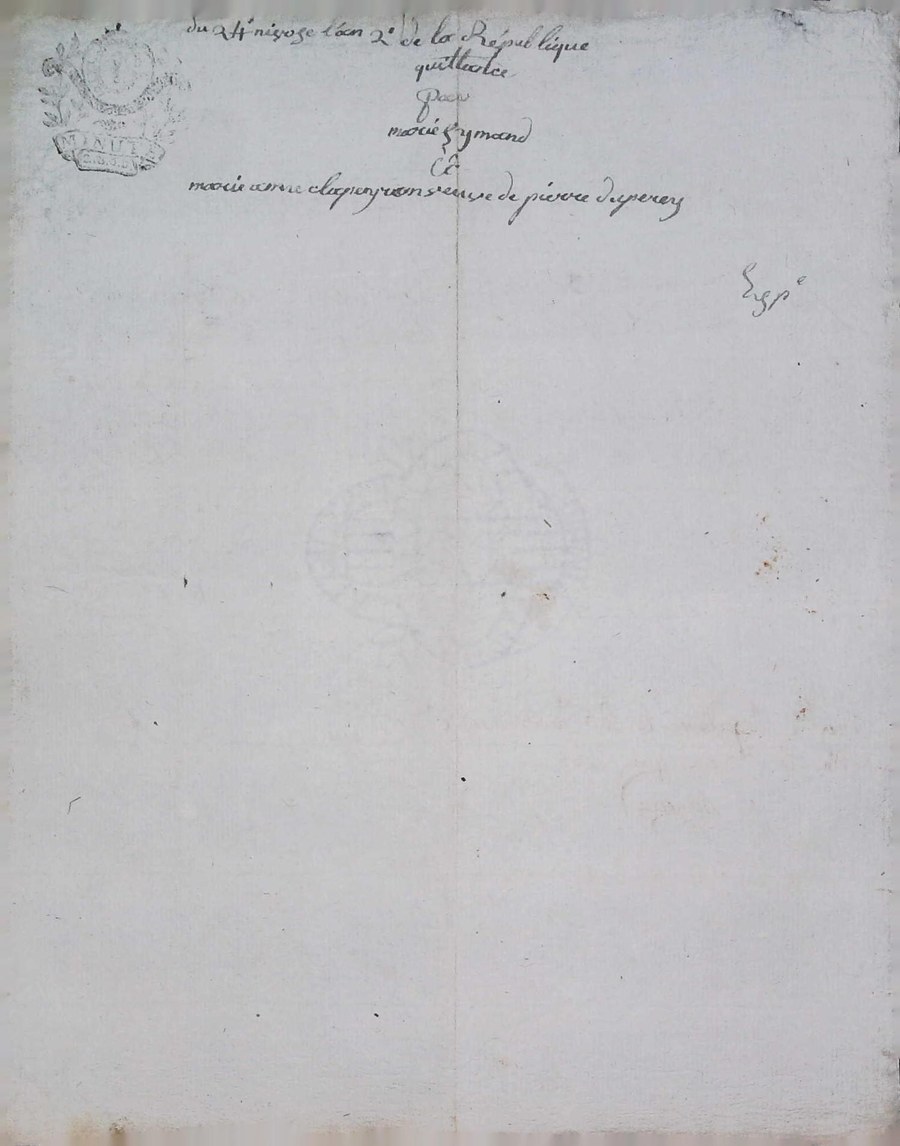 du 24e nivoze l'an 2e de la République
quittance
pour
marie eymand
Cē
marie anne clapeyron veuve de pierre duperey
MINUTE
Expe